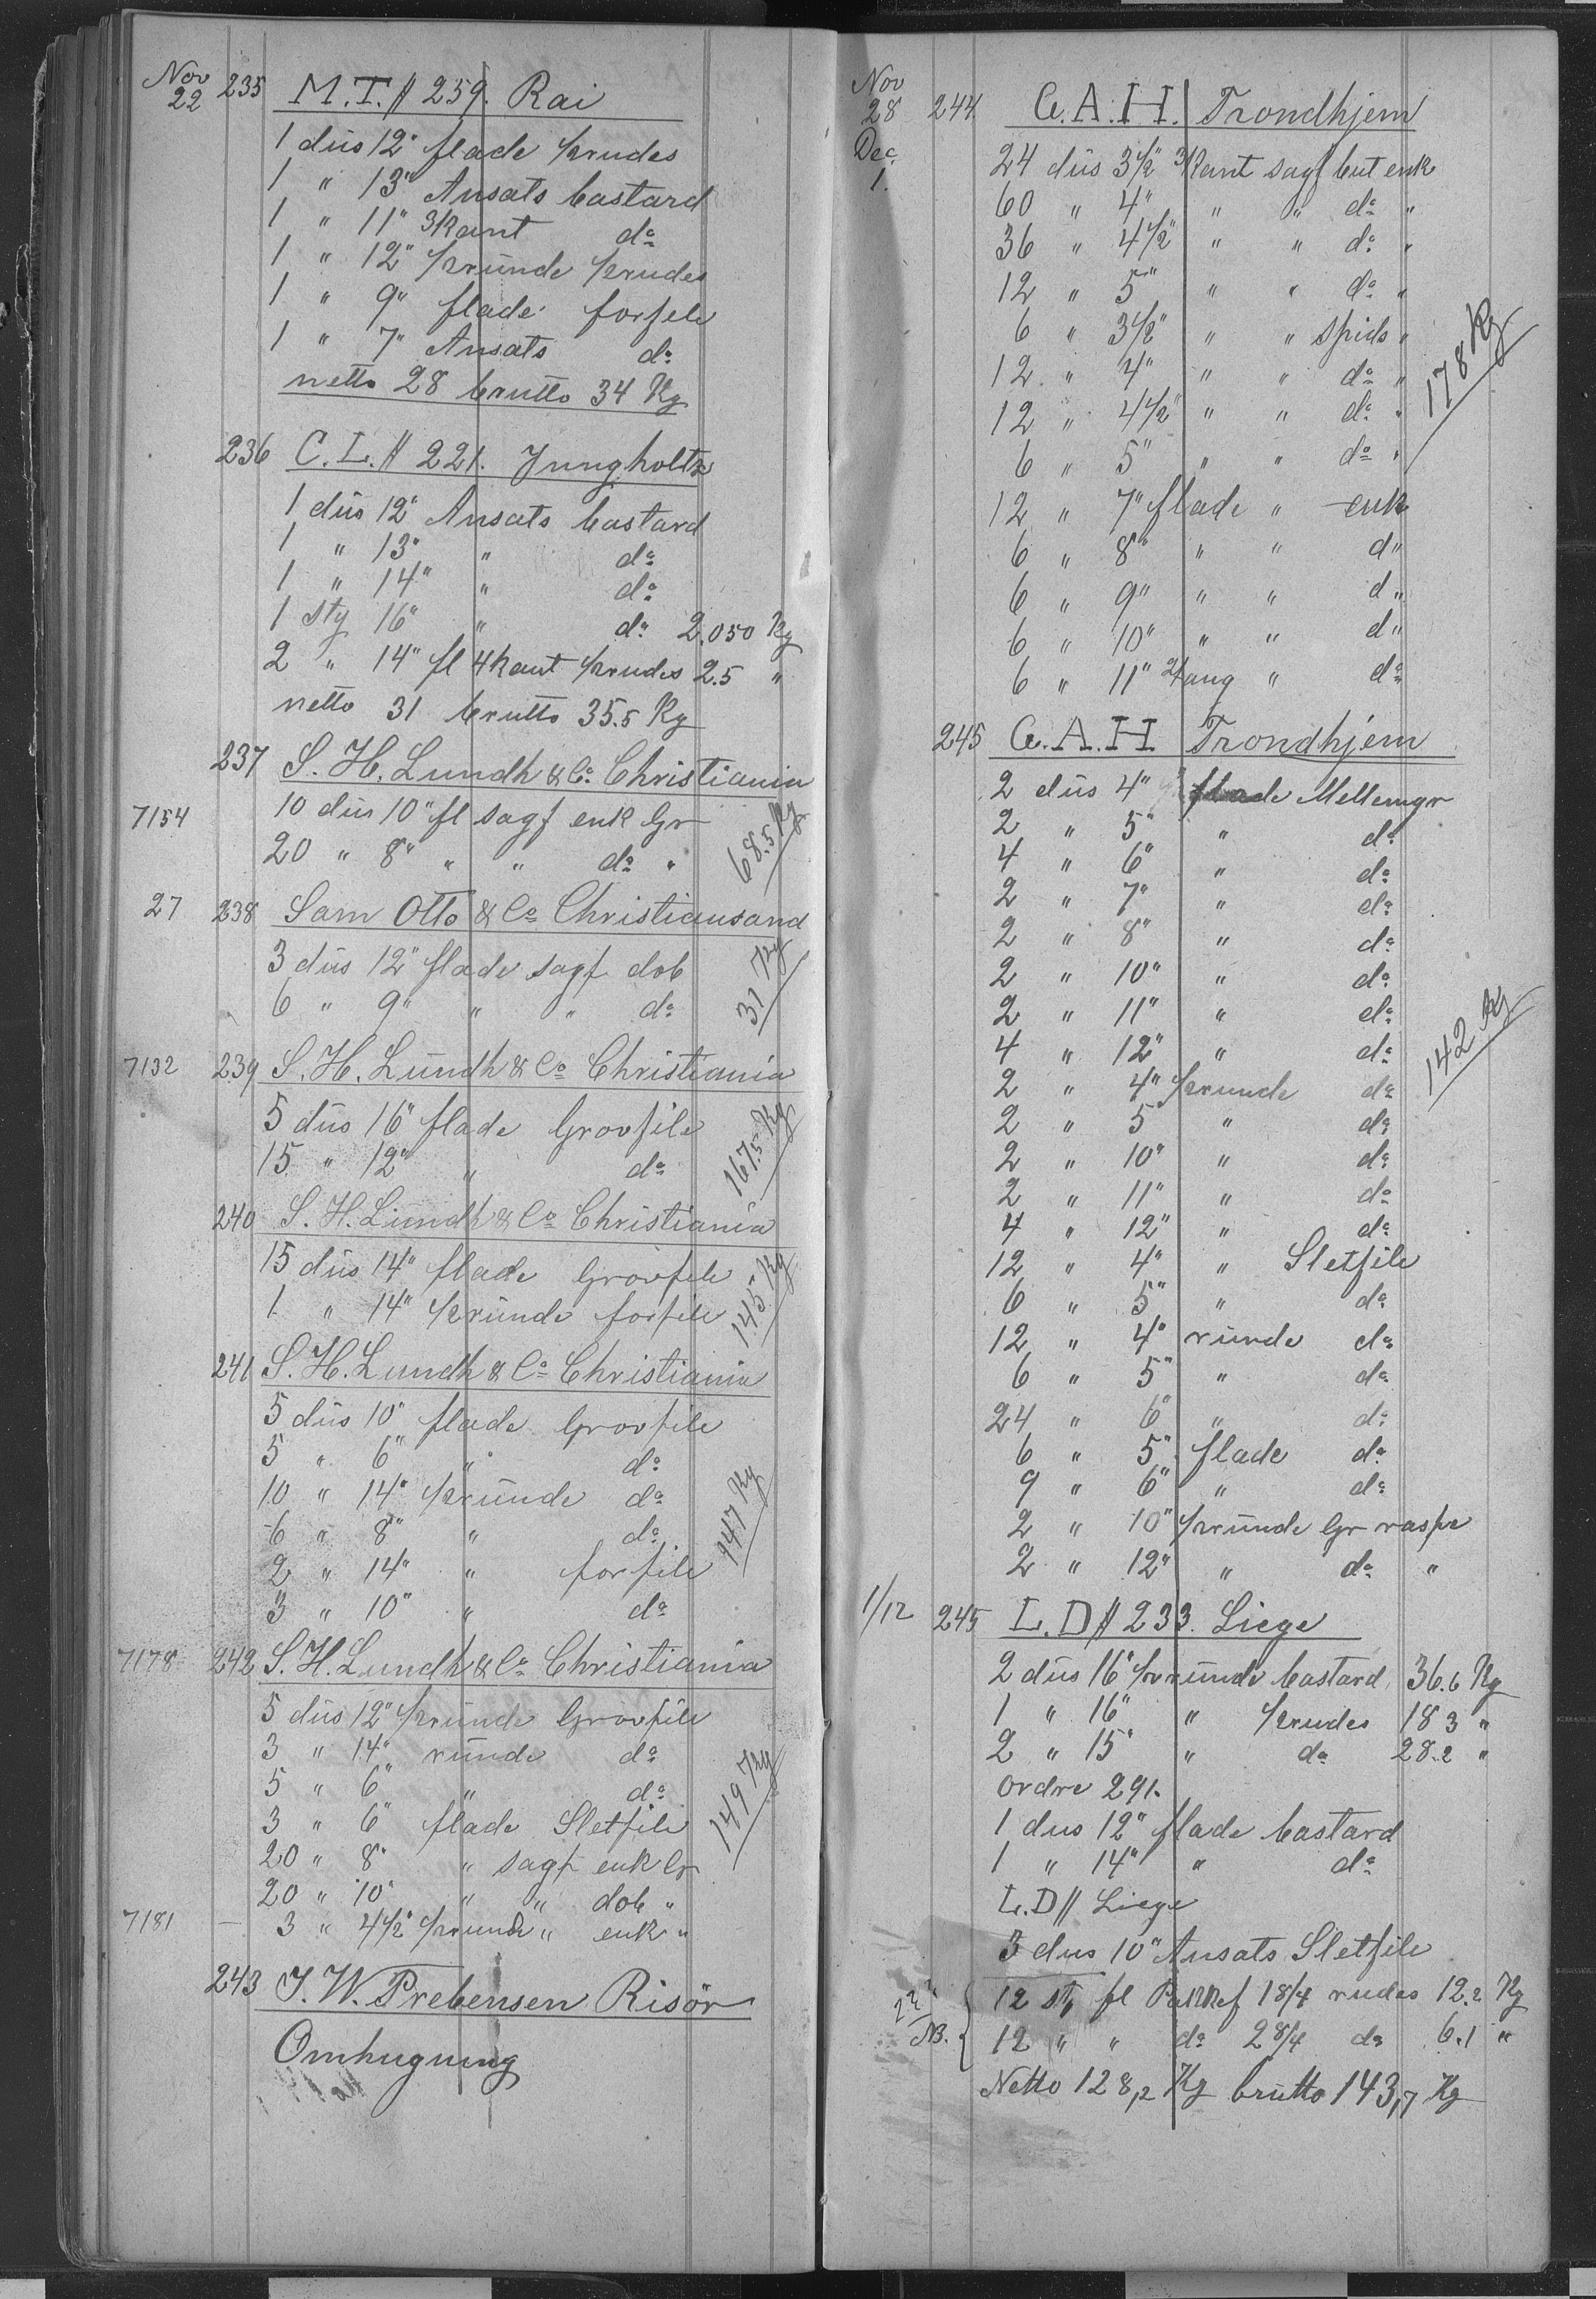 Nov 22 235 M.T. // 259. Rai
1 düs 12" flade 1/2rudes
1 " 13" Ansats bastard
1 " 11" 3kant do
1 " 12" 1/2ründe 1/2rudes
1 " 9" flade forfile
1 " 7" Ansats do
netto 28 brutto 34 Kg
236 C.L. // 221. Jungholtz
1 düs 12" Ansats bastard
1 " 13" " do
1 " 14" " do
1 stg 16" " do 2.050 Kg
2 " 14" fl 4kant 1/2rudes 2.5 "
netto 31 brutto 35.5 Kg
237 S. H. Lundh & Co. Christiania
7154 10 düs 10" fl sagf enk Gr
20 " 8" " " do " 68.5 Kg
27 238 Sam Otto & Co Christiansand
3 düs 12" flade sagf dob
6 " 9" " " do 31 Kg
7132 239 S. H. Lündh & Co Christiania
5 düs 16" flade Grovfile
15 " 12" " do 167.5 Kg
240 S. H. Lündh & Co Christiania
15 düs 14" flade Grovfile
1 " 14" 1/2ründe forfile 145 Kg
241 S. H. Lundh & Co Christiania
5 düs 10" flade Grovfile
5 " 6" " do
10 " 14" 1/2ründe do
6 " 8" " do 147 Kg
2 " 14" " forfile
3 " 10" " do
7178 242 S. H. Lundh & Co Christiania
5 düs 12" 1/2ründe Grovfile
3 " 14" ründe do
5 " 6" " do
3 " 6" flade Sletfile 149 Kg
20 " 8" " sagf enk Gr
20 " 10" " " dob "
7181 — 3 " 4 1/2" 1/2rund " enk "
243 J. W. Prebensen Risör
Omhugning
Nov 28 244 G. A. H. Trondhjem
Dec. 1. 24 düs 3 1/2" 3kant sagf but enk
60 " 4" " " do "
36 " 4 1/2" " " do "
12 " 5" " " do "
6 " 3 1/2" " " spids "
12 " 4" " " do " 178 Kg
12 " 4 1/2" " " do "
6 " 5" " " do "
12 " 7" flade " enk
6 " 8" " " d"
6 " 9" " " d"
6 " 10" " " d"
6 " 11" " do
245 G. A. H Trondhjem
2 düs 4" flade Mellemgr
2 " 5" " do
4 " 6" " do
2 " 7" " do
2 " 8" " do
2 " 10" " do
2 " 11" " do
4 " 12" " do 142 Kg
2 " 4" 1/2runde do
2 " 5" " do
2 " 10" " do
2 " 11" " do
4 " 12" " do
12 " 4" " Sletfile
6 " 5" " do
12 " 4" ründe do
6 " 5" " do
24 " 6" " do
6 " 5" flade do
9 " 6" " do
2 " 10" 1/2ründe Gr raspe
2 " 12" " do "
1/12 245 L. D // 233. Liege
2 düs 16" 1/2ründe bastard 36.6 Kg
1 " 16" " 1/2rudes 18 3 "
2 " 15" " do 28.2 "
ordre 291.
1 dus 12" flade bastard
1 " 14" " do
L. D // Liege
3 dus 10" Ansats Sletfile
12 st, fl Pakkef 18/4 rudes 12.2 Kg
NB. 12 " " do 28/4 do 6.1 "
Netto 128,2 Kg brütto 143,7 Kg